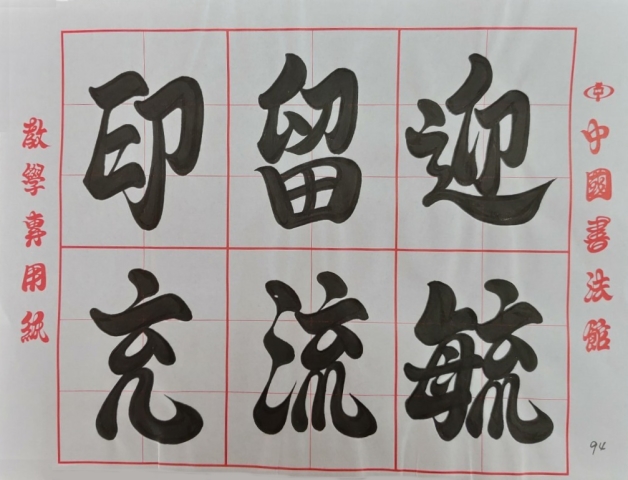 中國書法館
迎留印
毓流充
教學專用紙
94